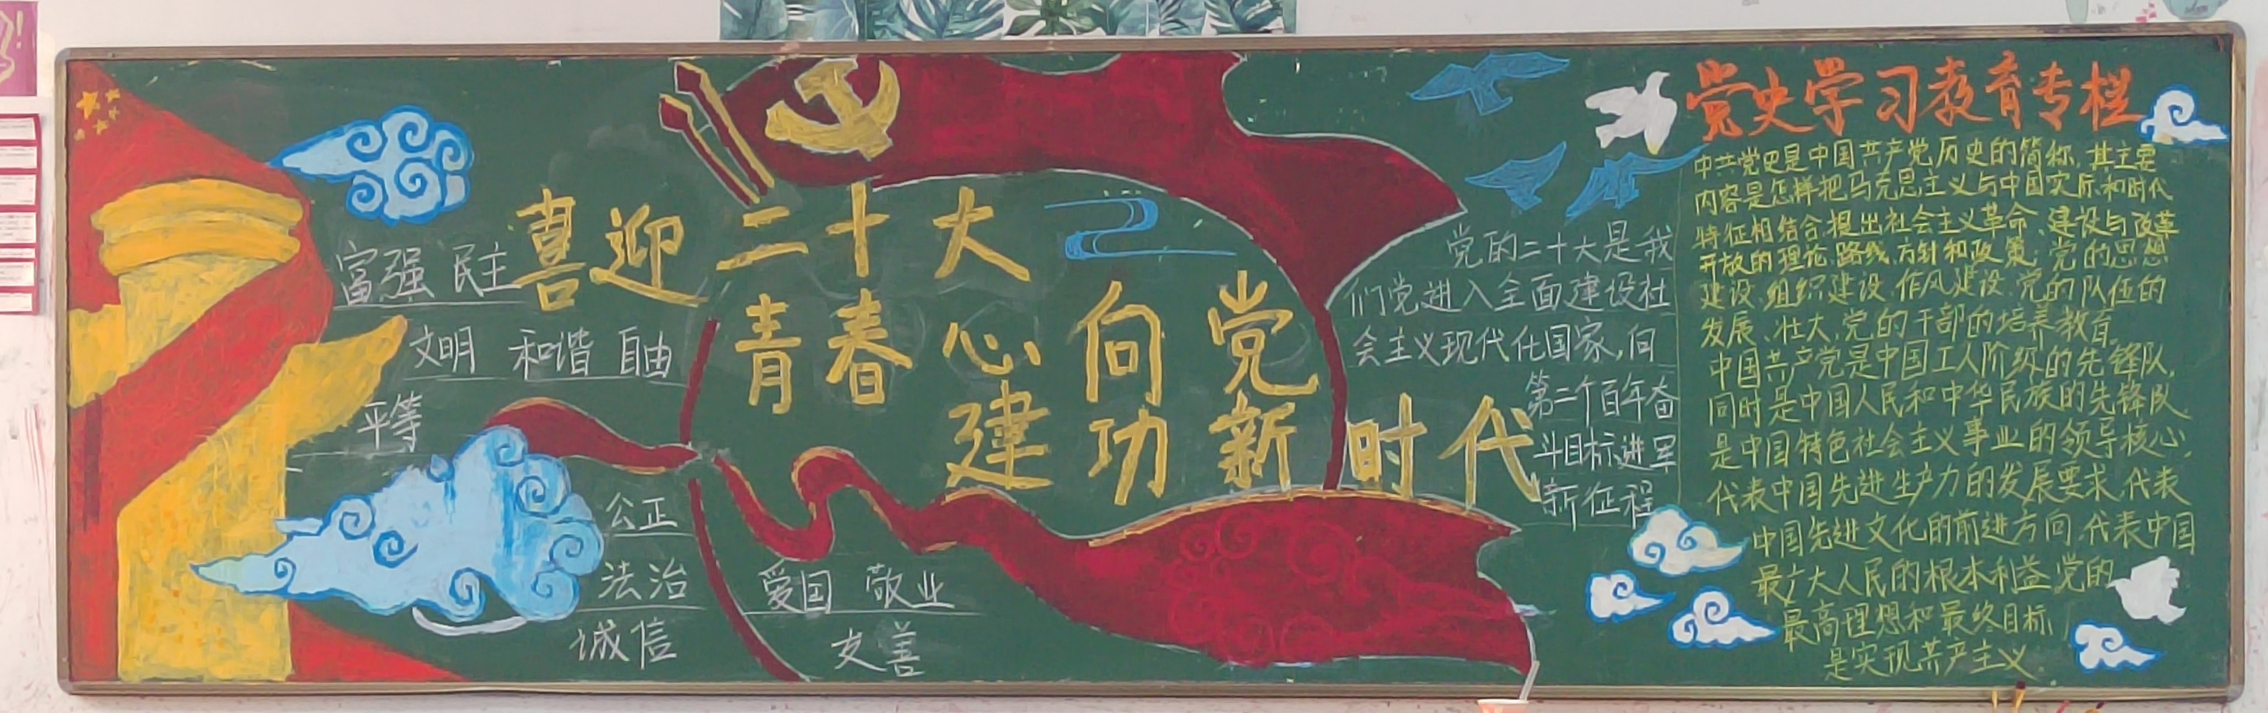 富强 民主
文明 和谐 自由
平等
公正
法治
诚信
爱国 敬业
友善
喜迎二十大
青春心向党
建功新时代
党的二十大是我
们党进入全面建设社
会主义现代化国家,向
第二个百年奋
斗目标进军
新征程
党史学习教育专栏
中共党史是中国共产党历史的简称,其主要
内容是怎样把马克思主义与中国实际和时代
特征相结合,提出社会主义革命、建设与改革
开放的理论、路线、方针和政策;党的思想
建设、组织建设、作风建设、党的队伍的
发展、壮大,党的干部的培养教育。
中国共产党是中国工人阶级的先锋队,
同时是中国人民和中华民族的先锋队,
是中国特色社会主义事业的领导核心,
代表中国先进生产力的发展要求,代表
中国先进文化的前进方向,代表中国
最广大人民的根本利益,党的
最高理想和最终目标
是实现共产主义。